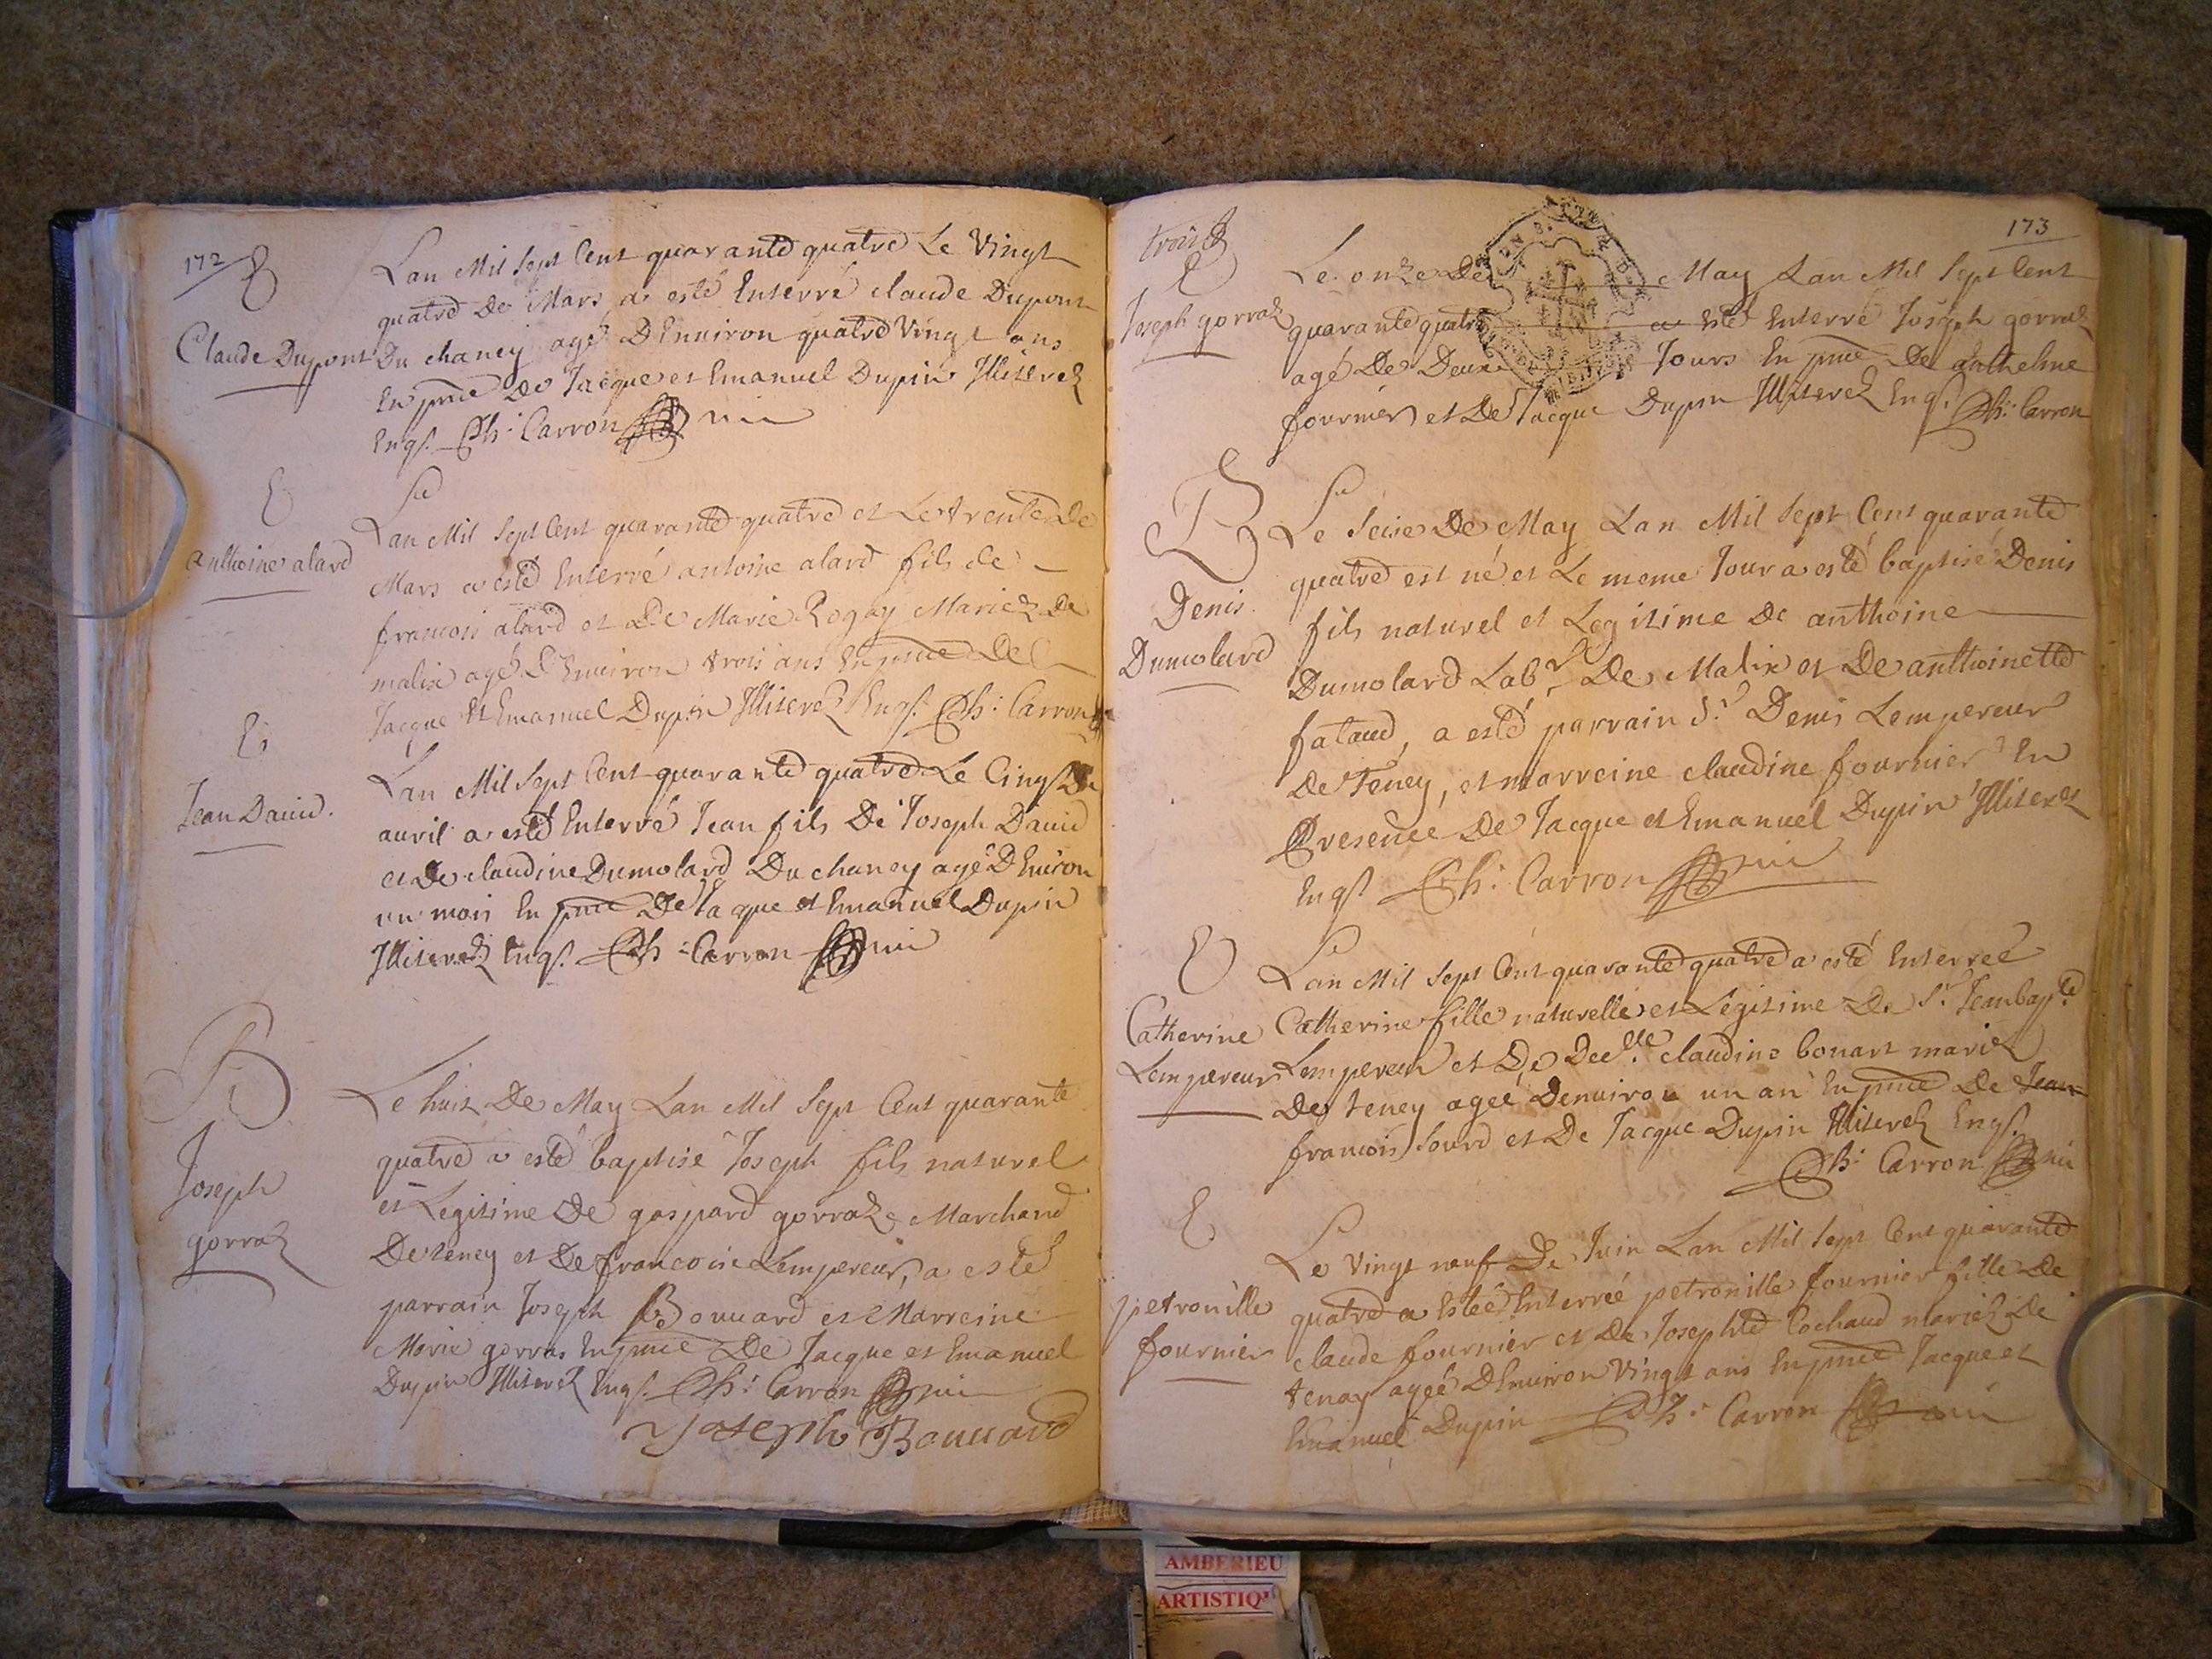 172
E
Claude Dupont
Lan Mil Sept Cent quarante quatre Le Vingt
quatre De Mars a esté Enterré claude Dupont
Du chaney agé D'Enuiron quatre Vingt ans
En pnce De Jacque et Emanuel Dupin Illiterez
Engs. Ph: Carron
E
anthoine alard
Lan Mil Sept Cent quarante quatre et Le trente De
Mars a esté Enterré antoine alard fils de
francois alard et De Marie Rogay Mariez De
malix agé D'Enuiron trois ans En pnce De
Jacque Et Emanuel Dupin Illiterez Engs. Ph: Carron
E
Jean Dauid.
Lan Mil Sept Cent quarante quatre Le Cinq De
auril a esté Enterré Jean fils De Joseph Dauid
et De claudine Dumolard Du chaney agé D'Enuiron
un mois En pnce De Jacque et Emanuel Dupin
Illiterez Engs. Ph: Carron
B
Joseph
gorraz
Le huit De May Lan Mil Sept Cent quarante
quatre a esté baptisé Joseph fils naturel
et Legitime De gaspard gorraz Marchand
De teney et De francoise Lempereur, a esté
parrain Joseph Bouuard et Marreine
Marie gorras En pnce De Jacque et Emanuel
Dupin Illiterez Engs. Ph: Carron
Joseph Bouuard
173
trois
E
Joseph gorraz
Le onze De May Lan Mil Sept Cent
quarante quatre a Esté Enterré Joseph gorraz
agé De Deux Jours En pnce De anthelme
fournier et De Jacque Dupin Illiterez Engs. Ph: Carron
B
Denis
Dumolard
Le Seise De May Lan Mil Sept Cent quarante
quatre est né et Le meme Jour a esté baptisé Denis
fils naturel et Legitime De anthoine
Dumolard Labr. De Malix et De anthoinette
fataud, a esté parrain Sr. Denis Lempereur
De Teney, et marreine claudine fournier En
Presence De Jacque et Emanuel Dupin Illiterez
Engs. Ph: Carron
E
Catherine
Lempereur
Lan Mil Sept Cent quarante quatre a esté Enterreé
Catherine fille naturelle et Legitime De Sr. Jean bapte
Lempereur et De Delle. claudine bonart mariez
De teney ageé Denuiron un an En pnce De Jean
francois Sourd et De Jacque Dupin Illiterez Engs.
Ph: Carron
E
petronille
fournier
Le Vingt neuf De Juin Lan Mil Sept Cent quarante
quatre a Esteé Enterreé petronille fournier fille De
claude fournier et De Josephte Cochaud Mariez De
tenay ageé D'Enuiron Vingt ans En pnce Jacque et
Emanuel Dupin Ph: Carron
AMBERIEU
ARTISTIQ